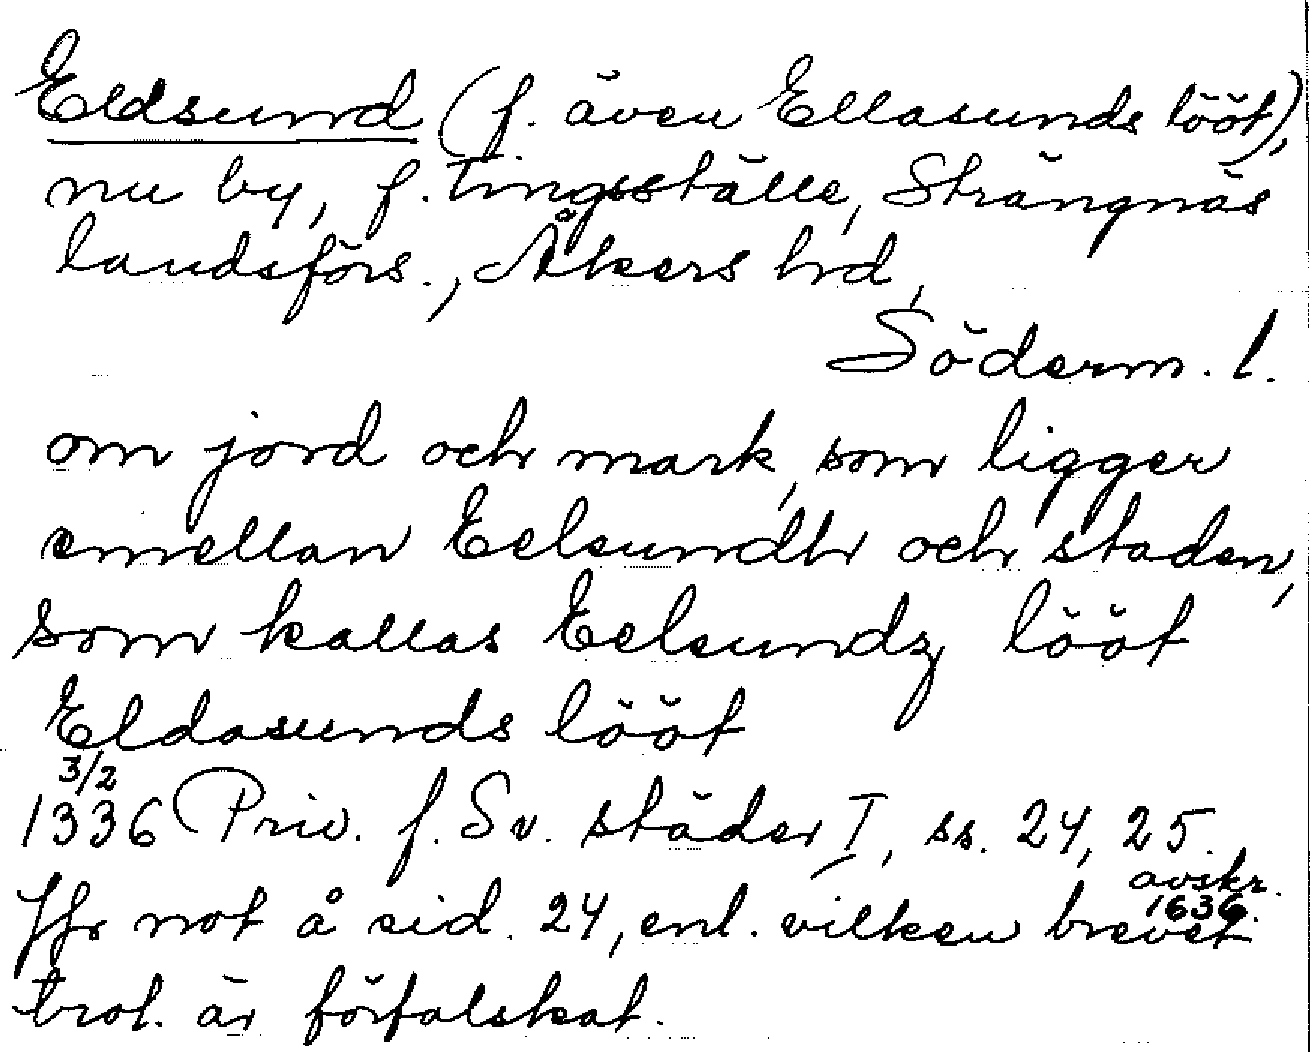 Eldsund (f. även Ellasunds lööt),
nu by, f. tingsställe, Strängnäs
landsförs., Åkers hrd,
Söderm. l.
om jord och mark, som ligger
emellan Eelsundh och staden,
som kallas Eelsundz lööt
Eldasunds lööt
3/2
1336 Priv. f. Sv. städer I, ss. 24, 25.
avskr.
1636.
Jfr not å sid. 24, enl. vilken brevet
trol. är förfalskat.